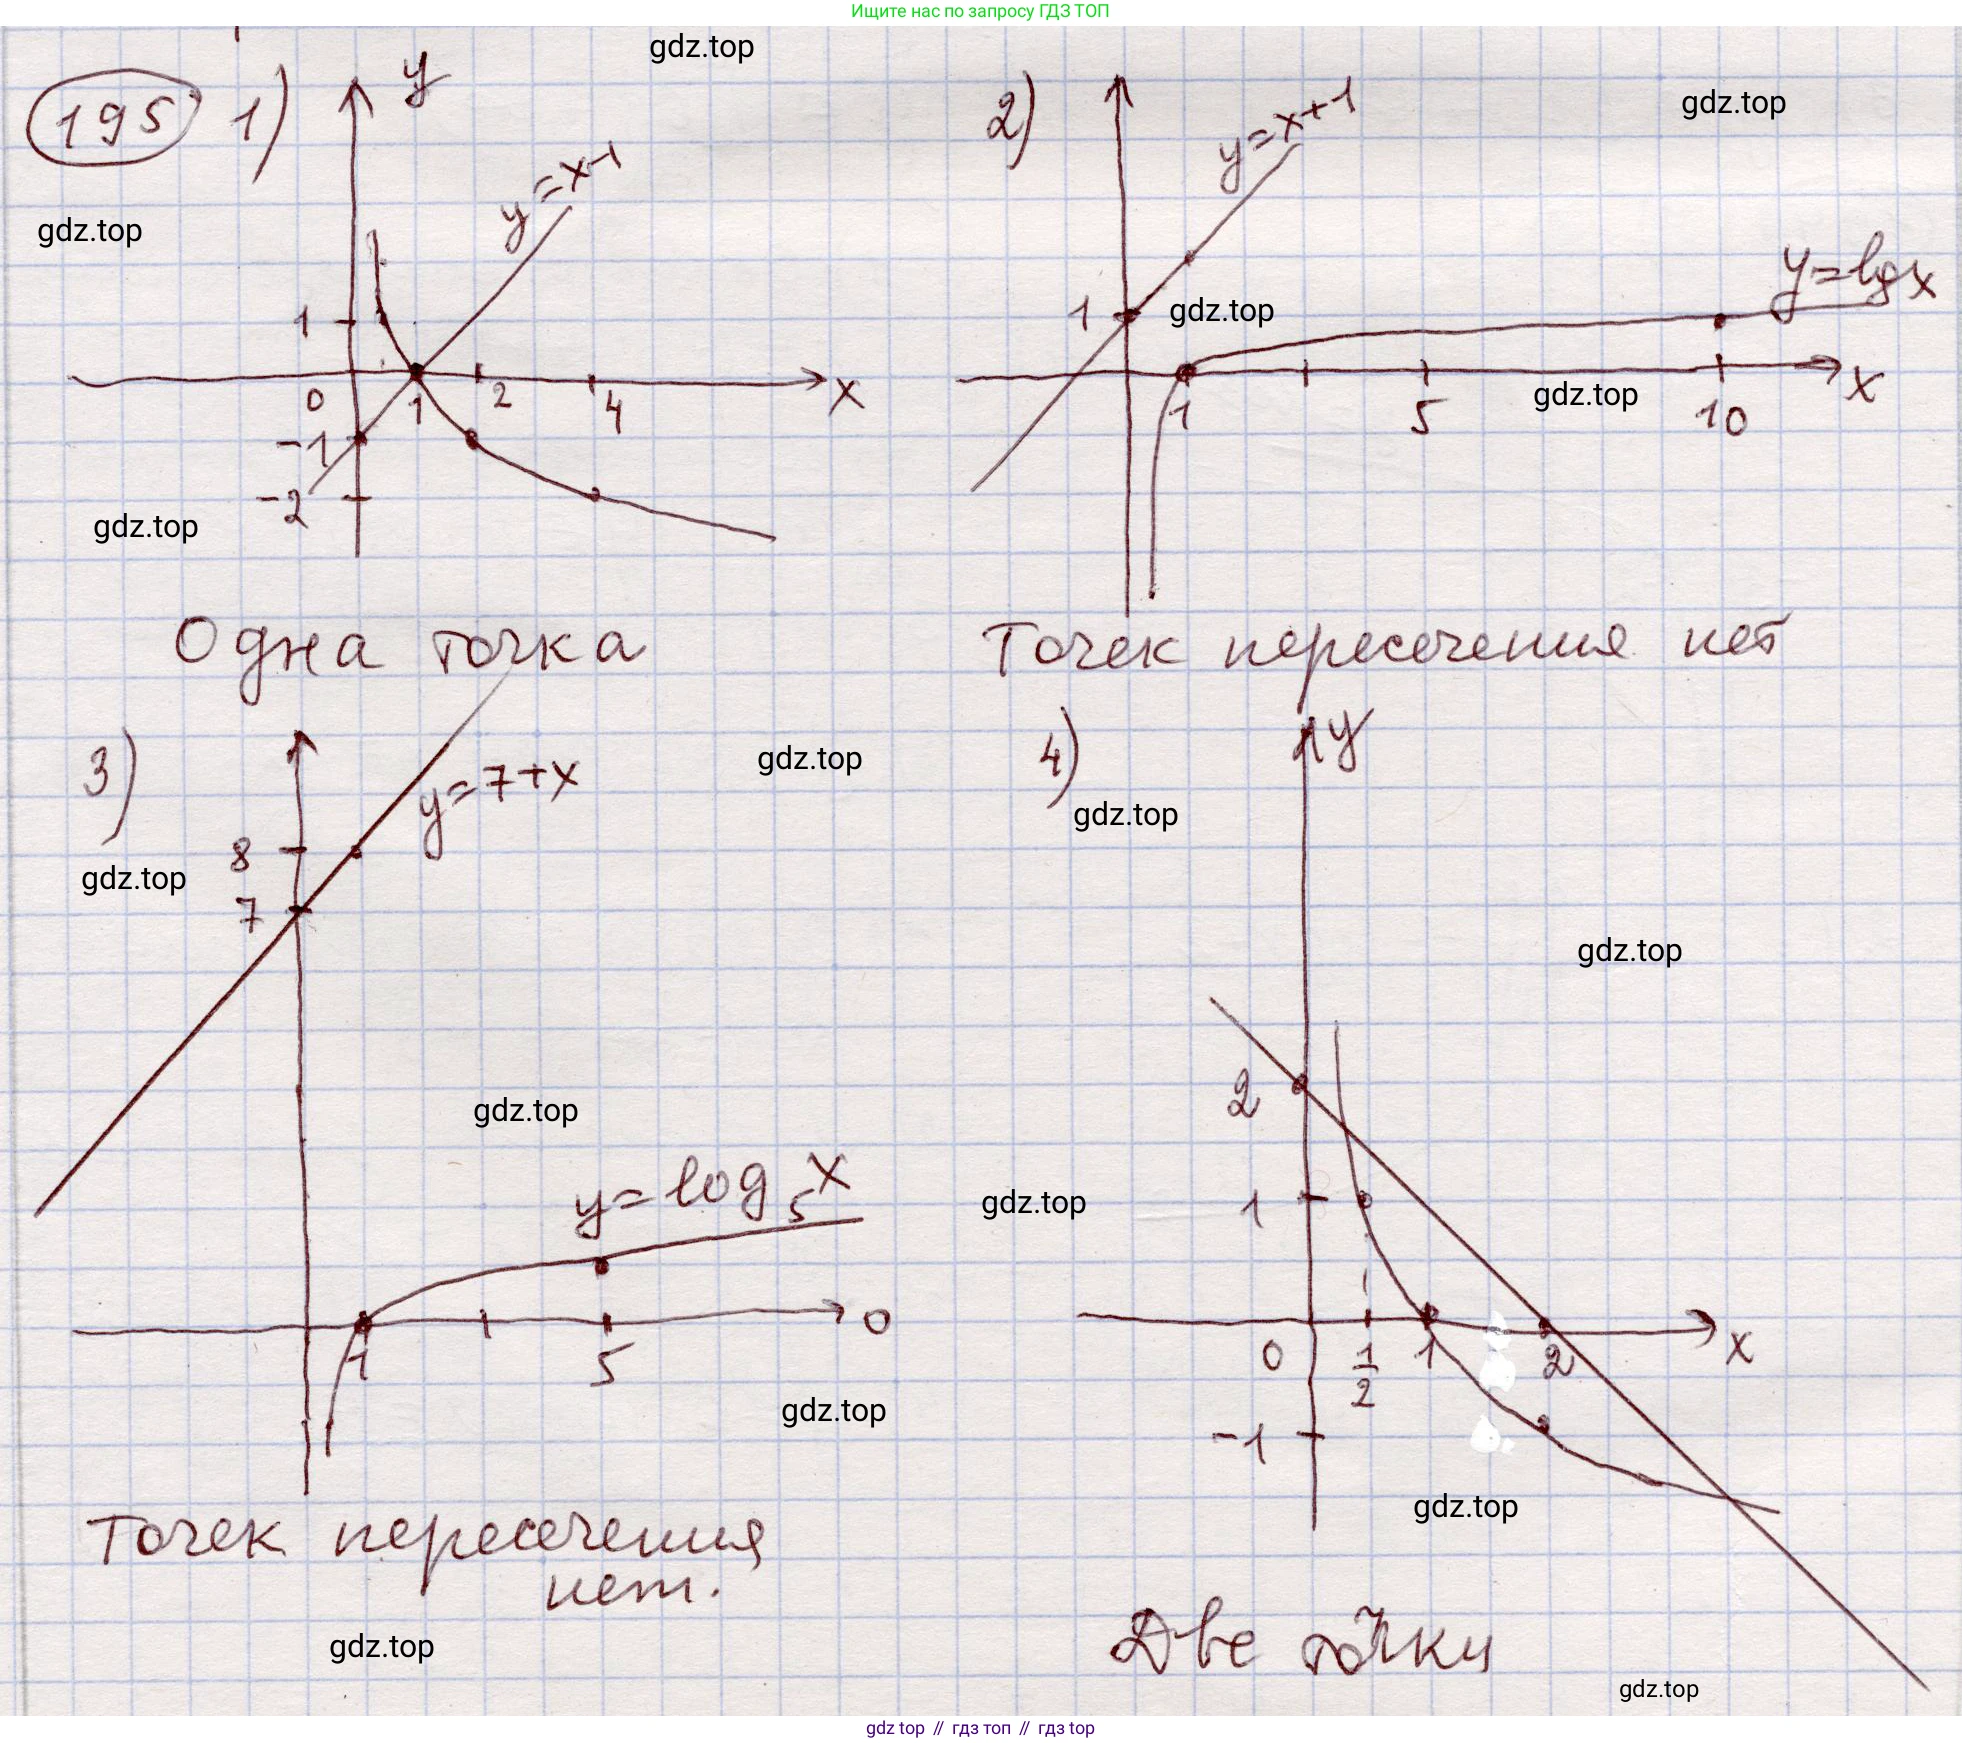 Ищите нас по запросу ГДЗ ТОП
gdz.top
195 1) y
y=x-1
1
0 1 2 4 x
-1
-2
gdz.top
gdz.top
Одна точка
2)
y=x+1
gdz.top
1
gdz.top
y=lg x
1 5 10 x
gdz.top
Точек пересечения нет
3)
y=7+x
gdz.top
8
7
gdz.top
gdz.top
y=log₅x
1 5 0
gdz.top
Точек пересечения
нет.
gdz.top
4) y
gdz.top
gdz.top
2
1
gdz.top
0 1/2 1 2 x
-1
gdz.top
Две точки
gdz.top
gdz top // гдз топ // гдз top